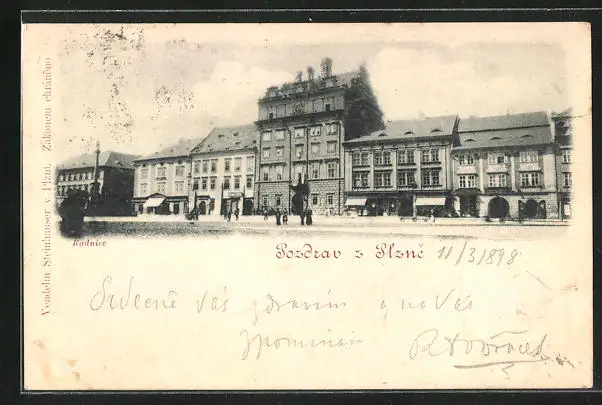 Vendelin Steinhauser v Plzni. Zákonem chráněno
Radnice
Pozdrav z Plzně 11/3 1898
Srdečně Vás zdravím a na Vás
vzpomínám